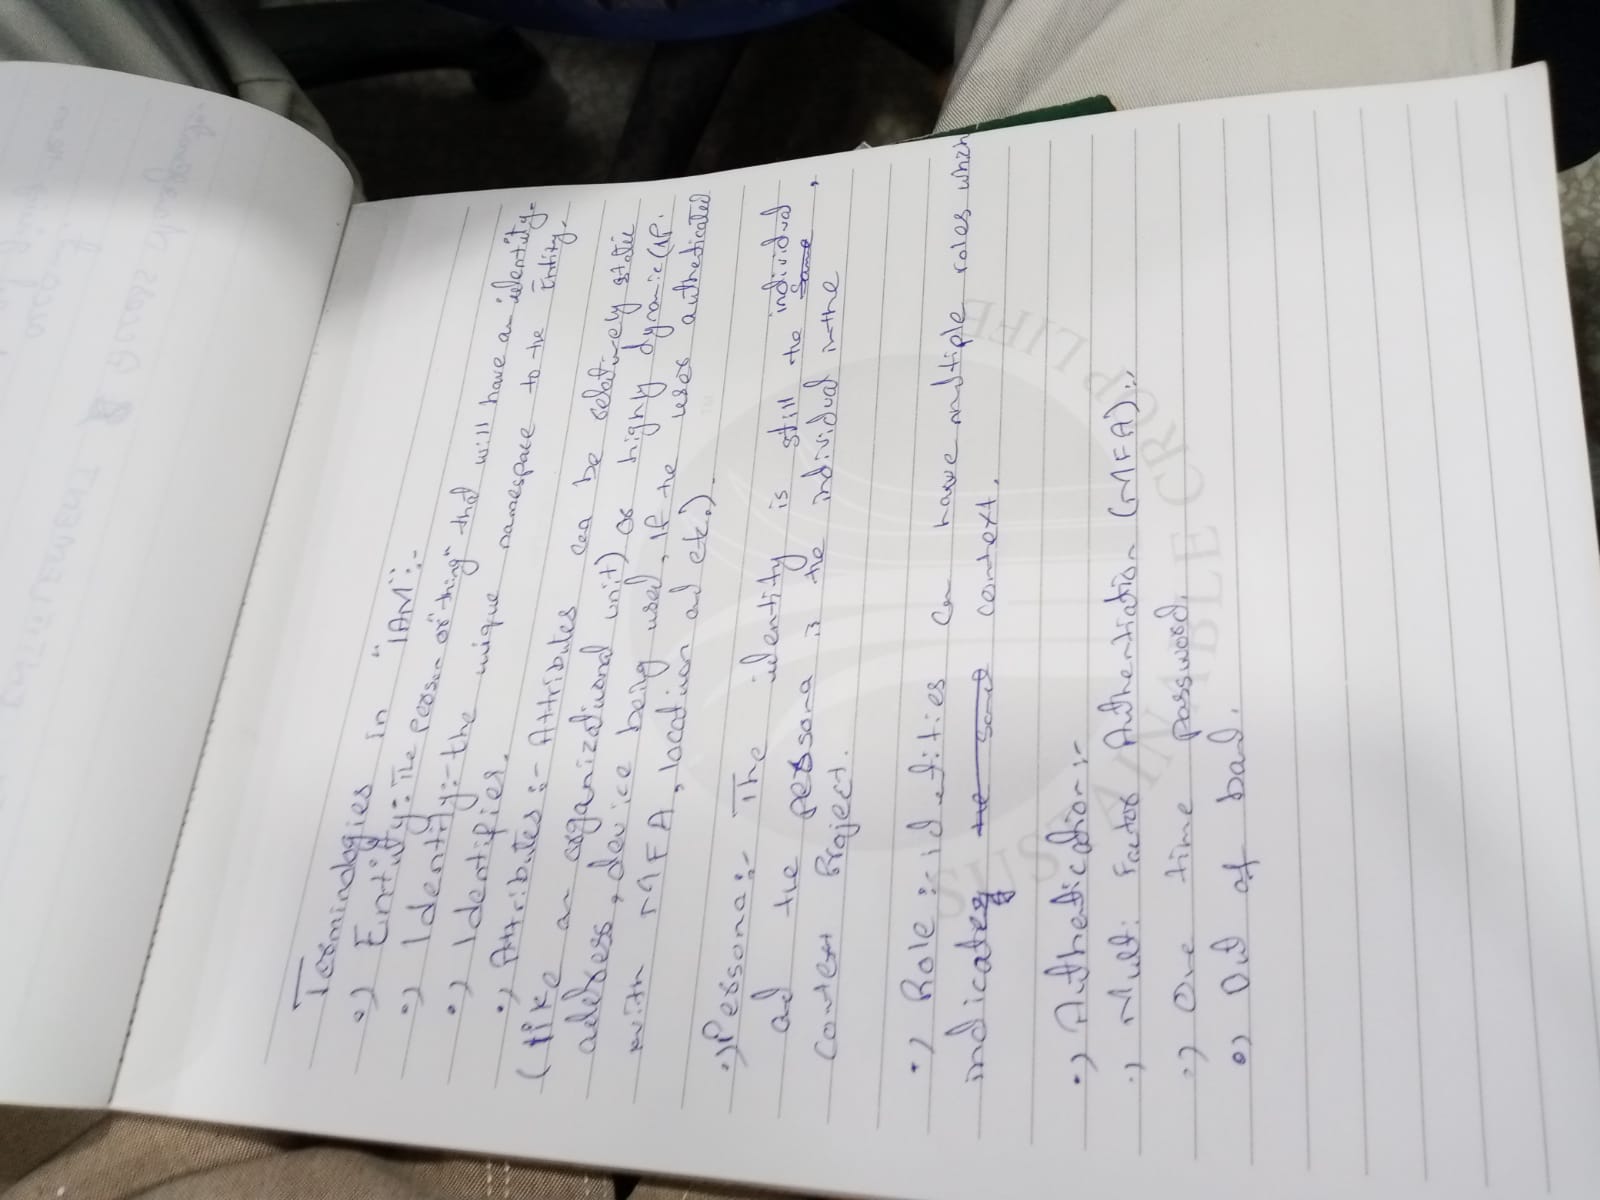 Terminologies in "IAM":-
•) Entity:- The person or "thing" that will have an identity.
•) Identity:- the unique namespace to the Entity.
•) Identifier.
•) Attributes:- Attributes can be relatively static
(like an organizational unit) or highly dynamic (IP.
address, device being used, If the user authedicated
with MFA, location ad etc.).
•) Persona:- The identity is still the individual
ad the persona is the individual in the same,
context Project.
•) Role:- idetities can have multiple roles which
indicates the same context.
•) Authedication:-
•) Multi Factor Authentiation (MFA):-
•) One time password.
•) Out of band.
SUSTAINABLE CROP LIFE